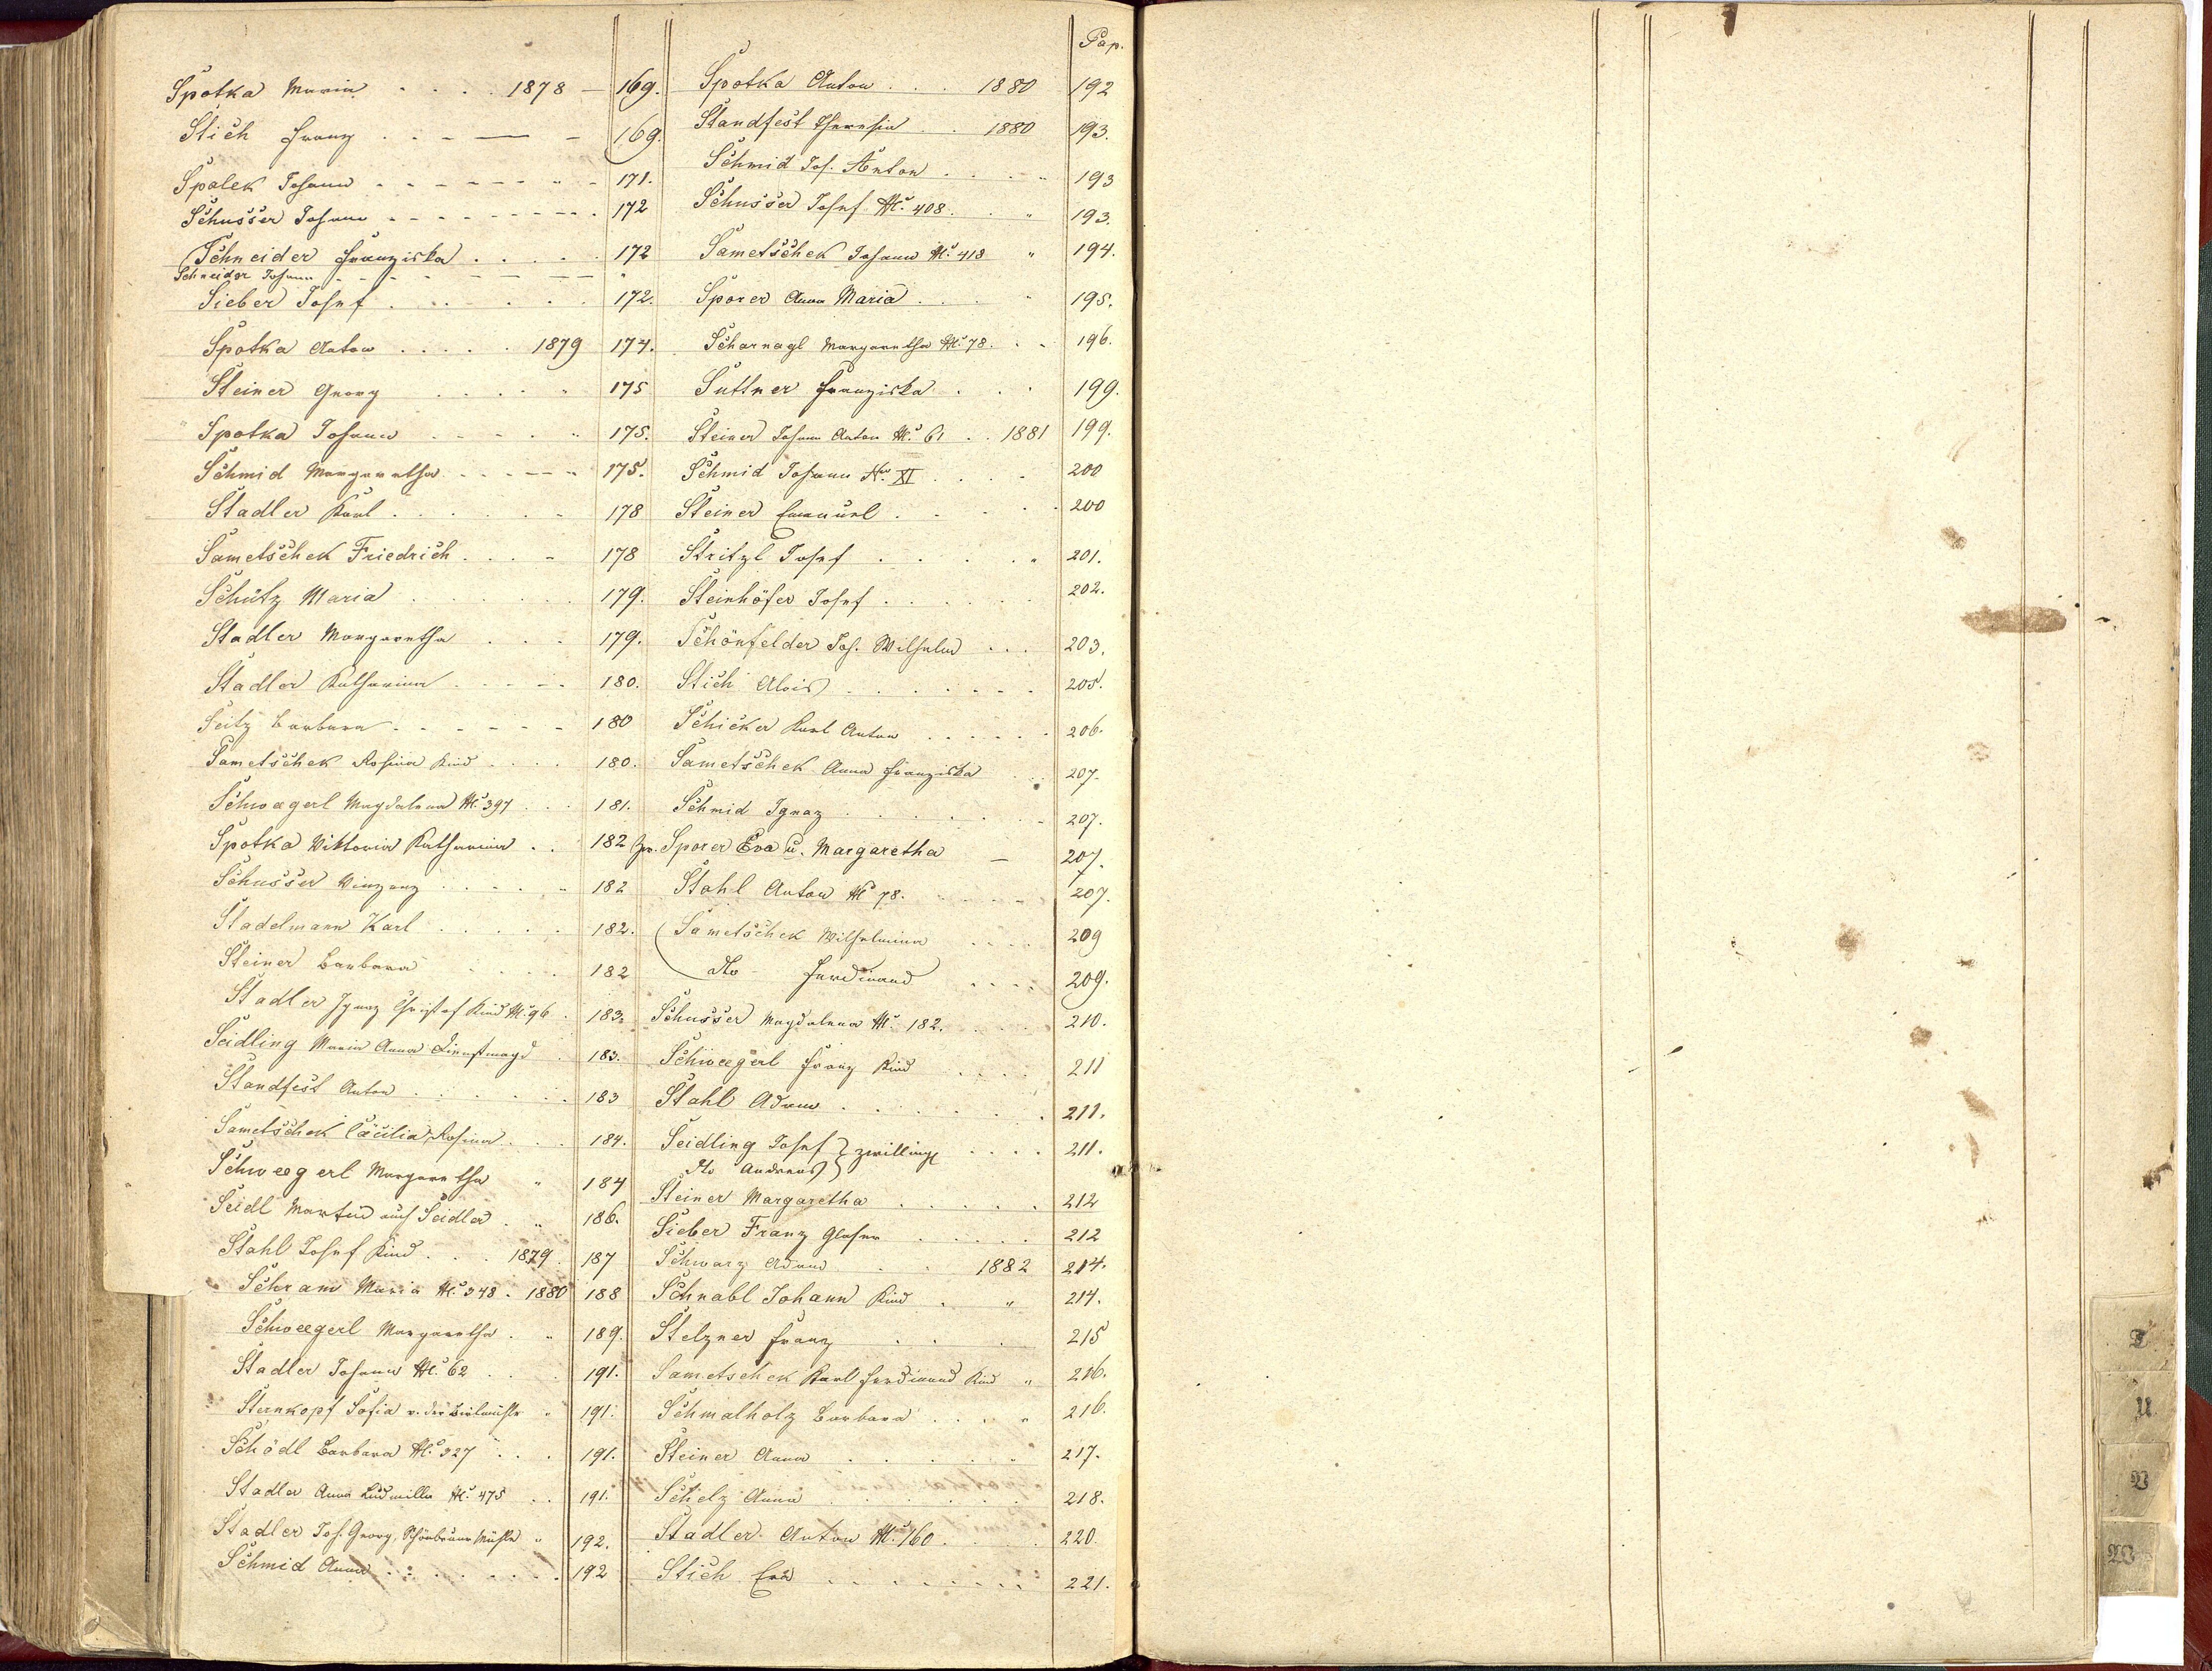 Spotka Maria . . . . 1878 – 169.
Stich Franz . . – — – 169.
Spalek Johann 171.
Schusser Johann 172
Schneider Franziska . . . . . 172
Schneider Johann "
Sieber Josef . . . . . . 172.
Spotka Anton . . . . . 1879 174.
Steiner Georg . . . . " 175
Spotka Johann " 175.
Schmid Margaretha " 175.
Stadler Karl . . . . . . 178
Sametschek Friedrich . . . 178
Schütz Maria . . . . . . 179.
Stadler Margaretha . . . 179.
Stadler Katharina 180.
Seitz Barbara 180
Sametschek Rosina Kind . . . . 180.
Schwagerl Magdalena N.º 397 . . . 181.
Spotka Viktoria Katharina . . 182
Schusser Vinzenz . . . . . 182
Stadelmann Karl . . . . . 182.
Steiner Barbara . . . . 182
Stadler Ignaz Christof Kind N.º 96 . 183.
Seidling Maria Anna Dienstmagd . 183.
Standfest Anton . . . . . . . 183
Sametschek Cäcilia Rosina . . . 184.
Schweegerl Margaretha " 184
Seidl Martin auch Seidler . " 186.
Stahl Josef Kind . . . 1879. 187
Schram Maria N.º 348 . 1880 188
Schweegerl Margaretha . " 189.
Stadler Johann N.º 62 . . . 191.
Sternkopf Sofia v. der " 191.
Schödl Barbara N.º 327 . . . 191.
Stadler Anna Ludmilla N.º 475 . . 191.
Stadler Jos. Georg, Schönbrunn Mühle " 192.
Schmid Anna . . . . . . . . 192
Pag.
Spotka Anton . . . 1880 192
Standfest Theresia . . 1880 193.
Schmid Jos. Anton . . . . " 193
Schusser Josef N.º 408 . . " 193.
Sametschek Johann N.º 418 " 194.
Sporer Anna Maria . . . . " 195.
Scharnagl Margaretha N.º 78 . . . 196.
Suttner Franziska . . . 199.
Steiner Johann Anton N.º 61 . . 1881 199.
Schmid Johann N.º XI . . . . 200
Steiner Emanuel . . . . . . 200
Stritzl Josef . . . . . " 201.
Steinhöfer Josef . . . . . . 202.
Schönfelder Jos. Wilhelm . . . 203.
Stich Alois . . . . . . . . 205.
Schicker Karl Anton . . . . . . 206.
Sametschek Anna Franziska . . . 207.
Schmid Ignaz . . . . . . . 207.
Sporer Eva u. Margaretha – 207.
Stahl Anton N.º 78. . . . . . 207.
Sametschek Wilhelmina . . . . 209
dto Ferdinand . . . . 209.
Schusser Magdalena N.º 182. . . . . 210.
Schweegerl Franz Kind . . . . 211
Stahl Adam . . . . . . . . 211.
Seidling Josef } Zwillinge . . . . 211.
dto Andreas }
Steiner Margaretha . . . . . . 212
Sieber Franz Glaser . . . . . . 212
Schwarz Adam . . 1882 214.
Schnabl Johann Kind . " 214.
Stelzner Franz . . . 215
Sametschek Karl Ferdinand Kind " 216.
Schmalholz Barbara . . . " 216.
Steiner Anna . . . . . " 217.
Schelz Anna . . . . . . . 218.
Stadler Anton N.º 160 . . . . 220.
Stich Eva . . . . . . . . 221.
T
U
V
W